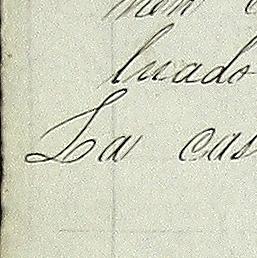 luado
La cas